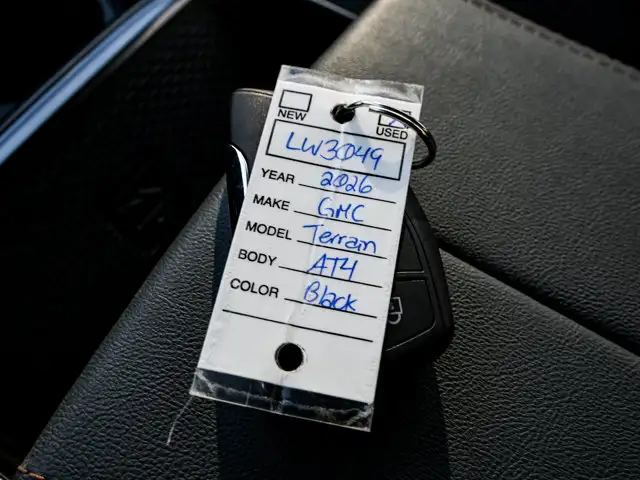 NEW USED
LW3049
YEAR 2026
MAKE GMC
MODEL Terrain
BODY AT4
COLOR Black